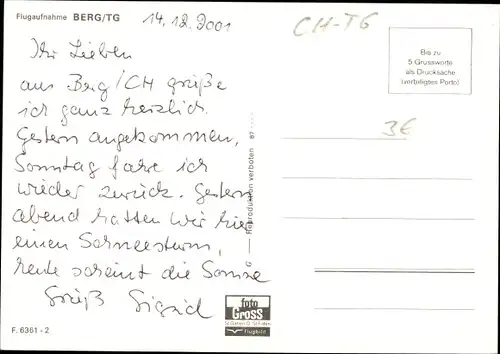 Flugaufnahme BERG/TG
14.12.2001
CH-TG
Ihr Lieben
aus Berg/CH grüße
ich ganz herzlich.
Gestern angekommen,
Sonntag fahre ich
wieder zurück. Gestern
abend hatten wir hier
einen Schneesturm,
heute scheint die Sonne
Gruß Sigrid
Bis zu
5 Grussworte
als Drucksache
(verbilligtes Porto)
3€
Reproduktion verboten 87
foto
GROSS
St. Gallen
Flugbild
F. 6361 - 2